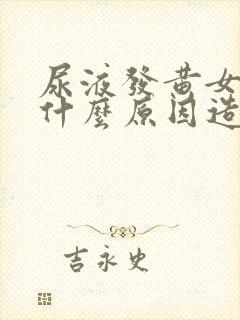 尿液發黃女
什麼原因造
吉永史